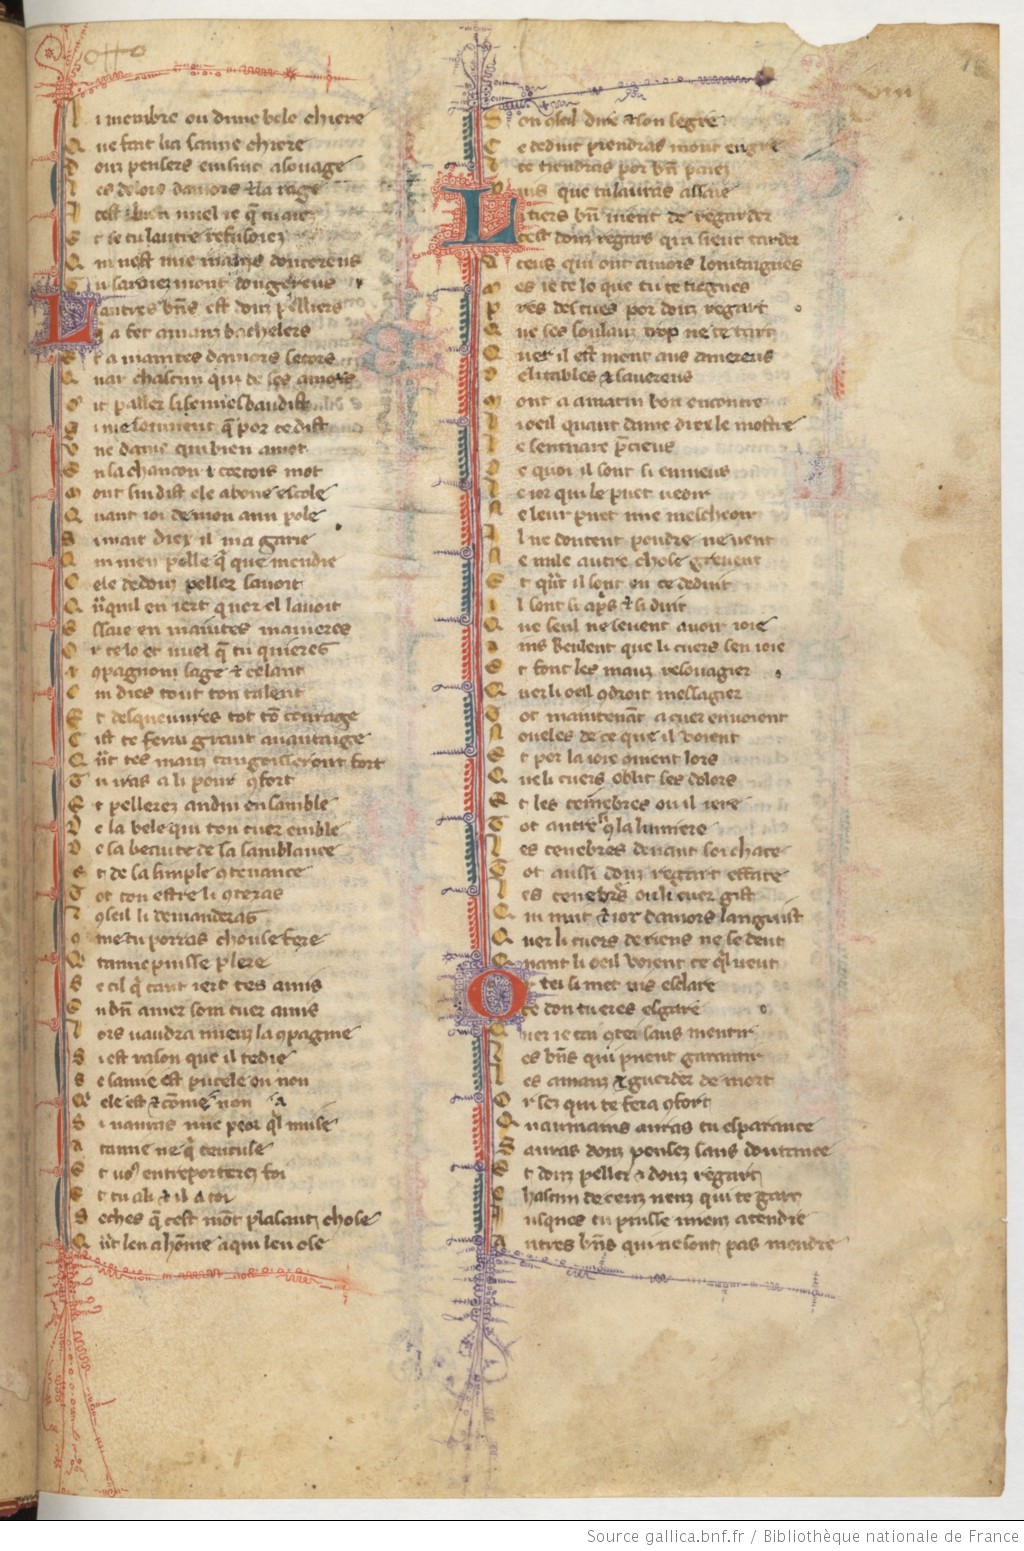 viii
L i membre ou dune bele chiere
Q ue fait lia samie chiere
D ouz pensers ensint asouage
L es dolors damors & la rage
E t se tu lautre refusoiez
Q ui nest mie mains doucereus
T u seroiez mont dongereus
L autres bñs est douz pelliers
Q a fet amanz bachelers
E t a maintes dames secors
Q uar chascun qui de ses amors
O it paller
V ne dame qui bien amot
E n la chancon i cortois mot
M ont sui dist ele a bone escole
Q uant ioi de mon ami pole
S i mait diex il ma garie
Q ui men polle q̃ que men die
C ele de douz peller savoit
Q ũquil en iert quer el lavoit
E ssaie en maintes manieres
O r te lo et uuel q̃ tu quieres
I ꝯpagnon sage & celant
C ui dies tout ton talent
E t desqueuures tot tõ courage
C ist te fera grant auantaige
Q ũt tes maus tangoisseront fort
T u iras a li pour ꝯfort
E t pellerez andui ensamble
D e la bele qui ton cuer emble
D e sa beaute de sa samblance
E t de sa simple ꝯtenance
T ot ton estre li ꝯteras
ꝯseil li demanderas
ꝯme tu porras chouse fere
Q tamie puisse plere
S e cil q̃ tant iert tes amis
E n bñ amer
L ors uaudra miex sa ꝯpagnie
S i est raison que il te die
S e samie est pucele ou non
Q ele est & cõme a non
S i nauras mie peor q̃l muse
A tamie ne q̃ tencuse
E t uos entreporterez foi
E t tu a li & il a toi
S aches q̃ cest mõt plasant chose
Q ũt len a hõme a qui len ose
S on ꝯseil dire & son segre
C e deduit prendras mont en gre
te tiendras por bñ paiez
P uis que tu lauras assaie
L i tiers bñ uient de regarder
C est douz regars qui sieut tarder
A ceus qui ont amors lontaignes
M es ie te lo que tu te tiegnes
P res de lues por douz regart
Q ue ses soulauz trop ne te tart
Q uer il est mont aus amereus
D elitables & sauereus
M ont a au matin bon encontre
L i oeil quant dame diex le mostre
L e sentuare p̃cieus
D e quoi il sont si enuieus
L e ior qui le puet ueoir
N e leur puet mie mescheoir
I l ne doutent poudre ne uent
N e nule autre chose greuent
E t q̃nt il sont ou ce deduit
I l sont si ap̃s & si duit
Q ue seul ne seuent auoir ioie
A ins veulent que li cuers sen ioie
E t font les maux resouagier
Q uer li oeil ꝯdroit messagier
T ot maintenãt a cuer enuoient
N oueles de ce que il voient
E t por la ioie ouient lors
Q ue li cuers oblit ses dolors
E t les tenebres ou il iere
T ot autresi q̃ la lumiere
L es tenebres deuant soi chace
T ot aussi douz regart efface
L es tenebrs ou li cuer gist
Q ui nuit & ior damors languist
Q uer li cuers de riens ne se deut
Q uant li oeil voient ce q̃l ueut
O r tai si met uis esclare
C e don tu eres esgare
Q uer ie tai ꝯtei sans mentir
L es bñs qui puent garantir
L es amanz & guerder de mort
O r sez qui te fera ꝯfort
Q uaumains auras tu esparance
S auras douz pensez sans doutance
E t douz pellei & douz regart
C hascun de ceuz ueuz qui te gart
I usques tu puisse miex atendre
A utres bñs qui ne sont pas mendre
Source gallica.bnf.fr / Bibliothèque nationale de France